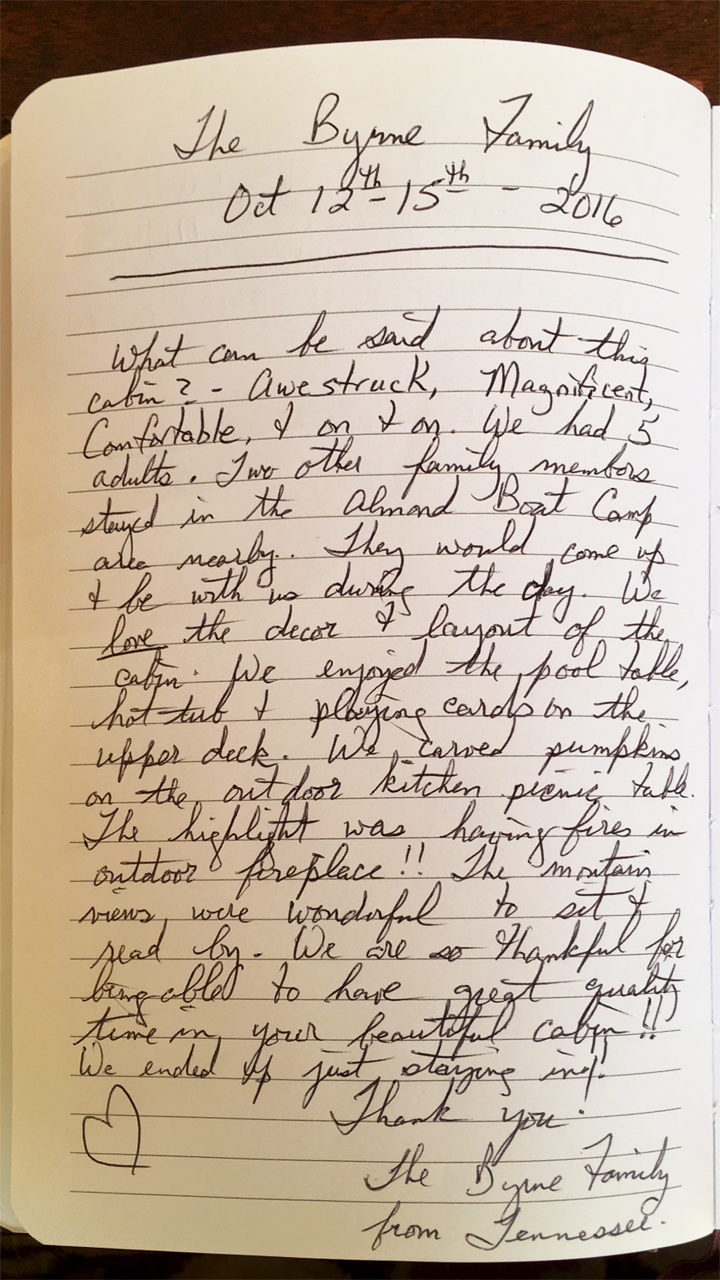 The Byrne Family
Oct 12th - 15th - 2016
What can be said about this
cabin? - Awestruck, Magnificent,
Comfortable, & on & on. We had 5
adults. Two other family members
stayed in the Almond Boat Camp
area nearby. They would come up
& be with us during the day. We
love the decor & layout of the
cabin. We enjoyed the pool table,
hot-tub & playing cards on the
upper deck. We carved pumpkins
on the outdoor kitchen picnic table.
The highlight was having fires in
outdoor fireplace!! The montain
views were wonderful to sit &
read by. We are so thankful for
being able to have great quality
time in your beautiful cabin!!
We ended up just staying in!
Thank you.
The Byrne Family
from Tennessee.